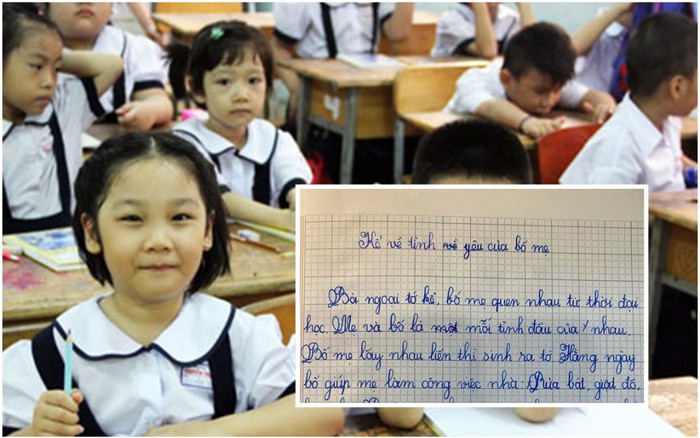 Kể về tình yêu của bố mẹ
Bà ngoại tớ kể, bố mẹ quen nhau từ thời đại
học. Mẹ và bố là một mối tình đầu của nhau.
Bố mẹ lấy nhau liền thì sinh ra tớ. Hằng ngày
bố giúp mẹ làm công việc nhà: Rửa bát, giặt đồ,